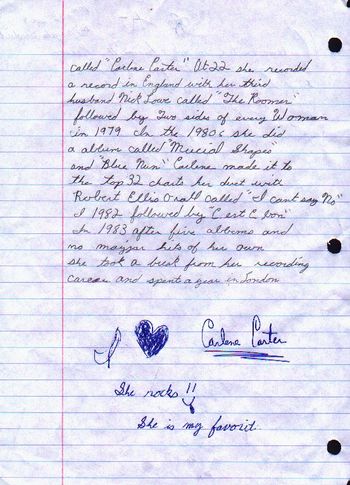 called "Carlene Carter" At 22 she recorded
a record in England with her third
husband Nick Lowe called "The Roomer"
followed by Two sides of every Woman
in 1979 In the 1980s she did
a album called "Musical Shapes"
and "Blue Nun" Carlene made it to
the top 32 charts her duet with
Robert Ellis Orall called "I cant say No"
I 1982 followed by "C est C bon"
In 1983 after five albums and
no majjar hits of her own
she took a break from her recording
career and spent a year in London
I ♥ Carlene Carter
She rocks !!
She is my favorit